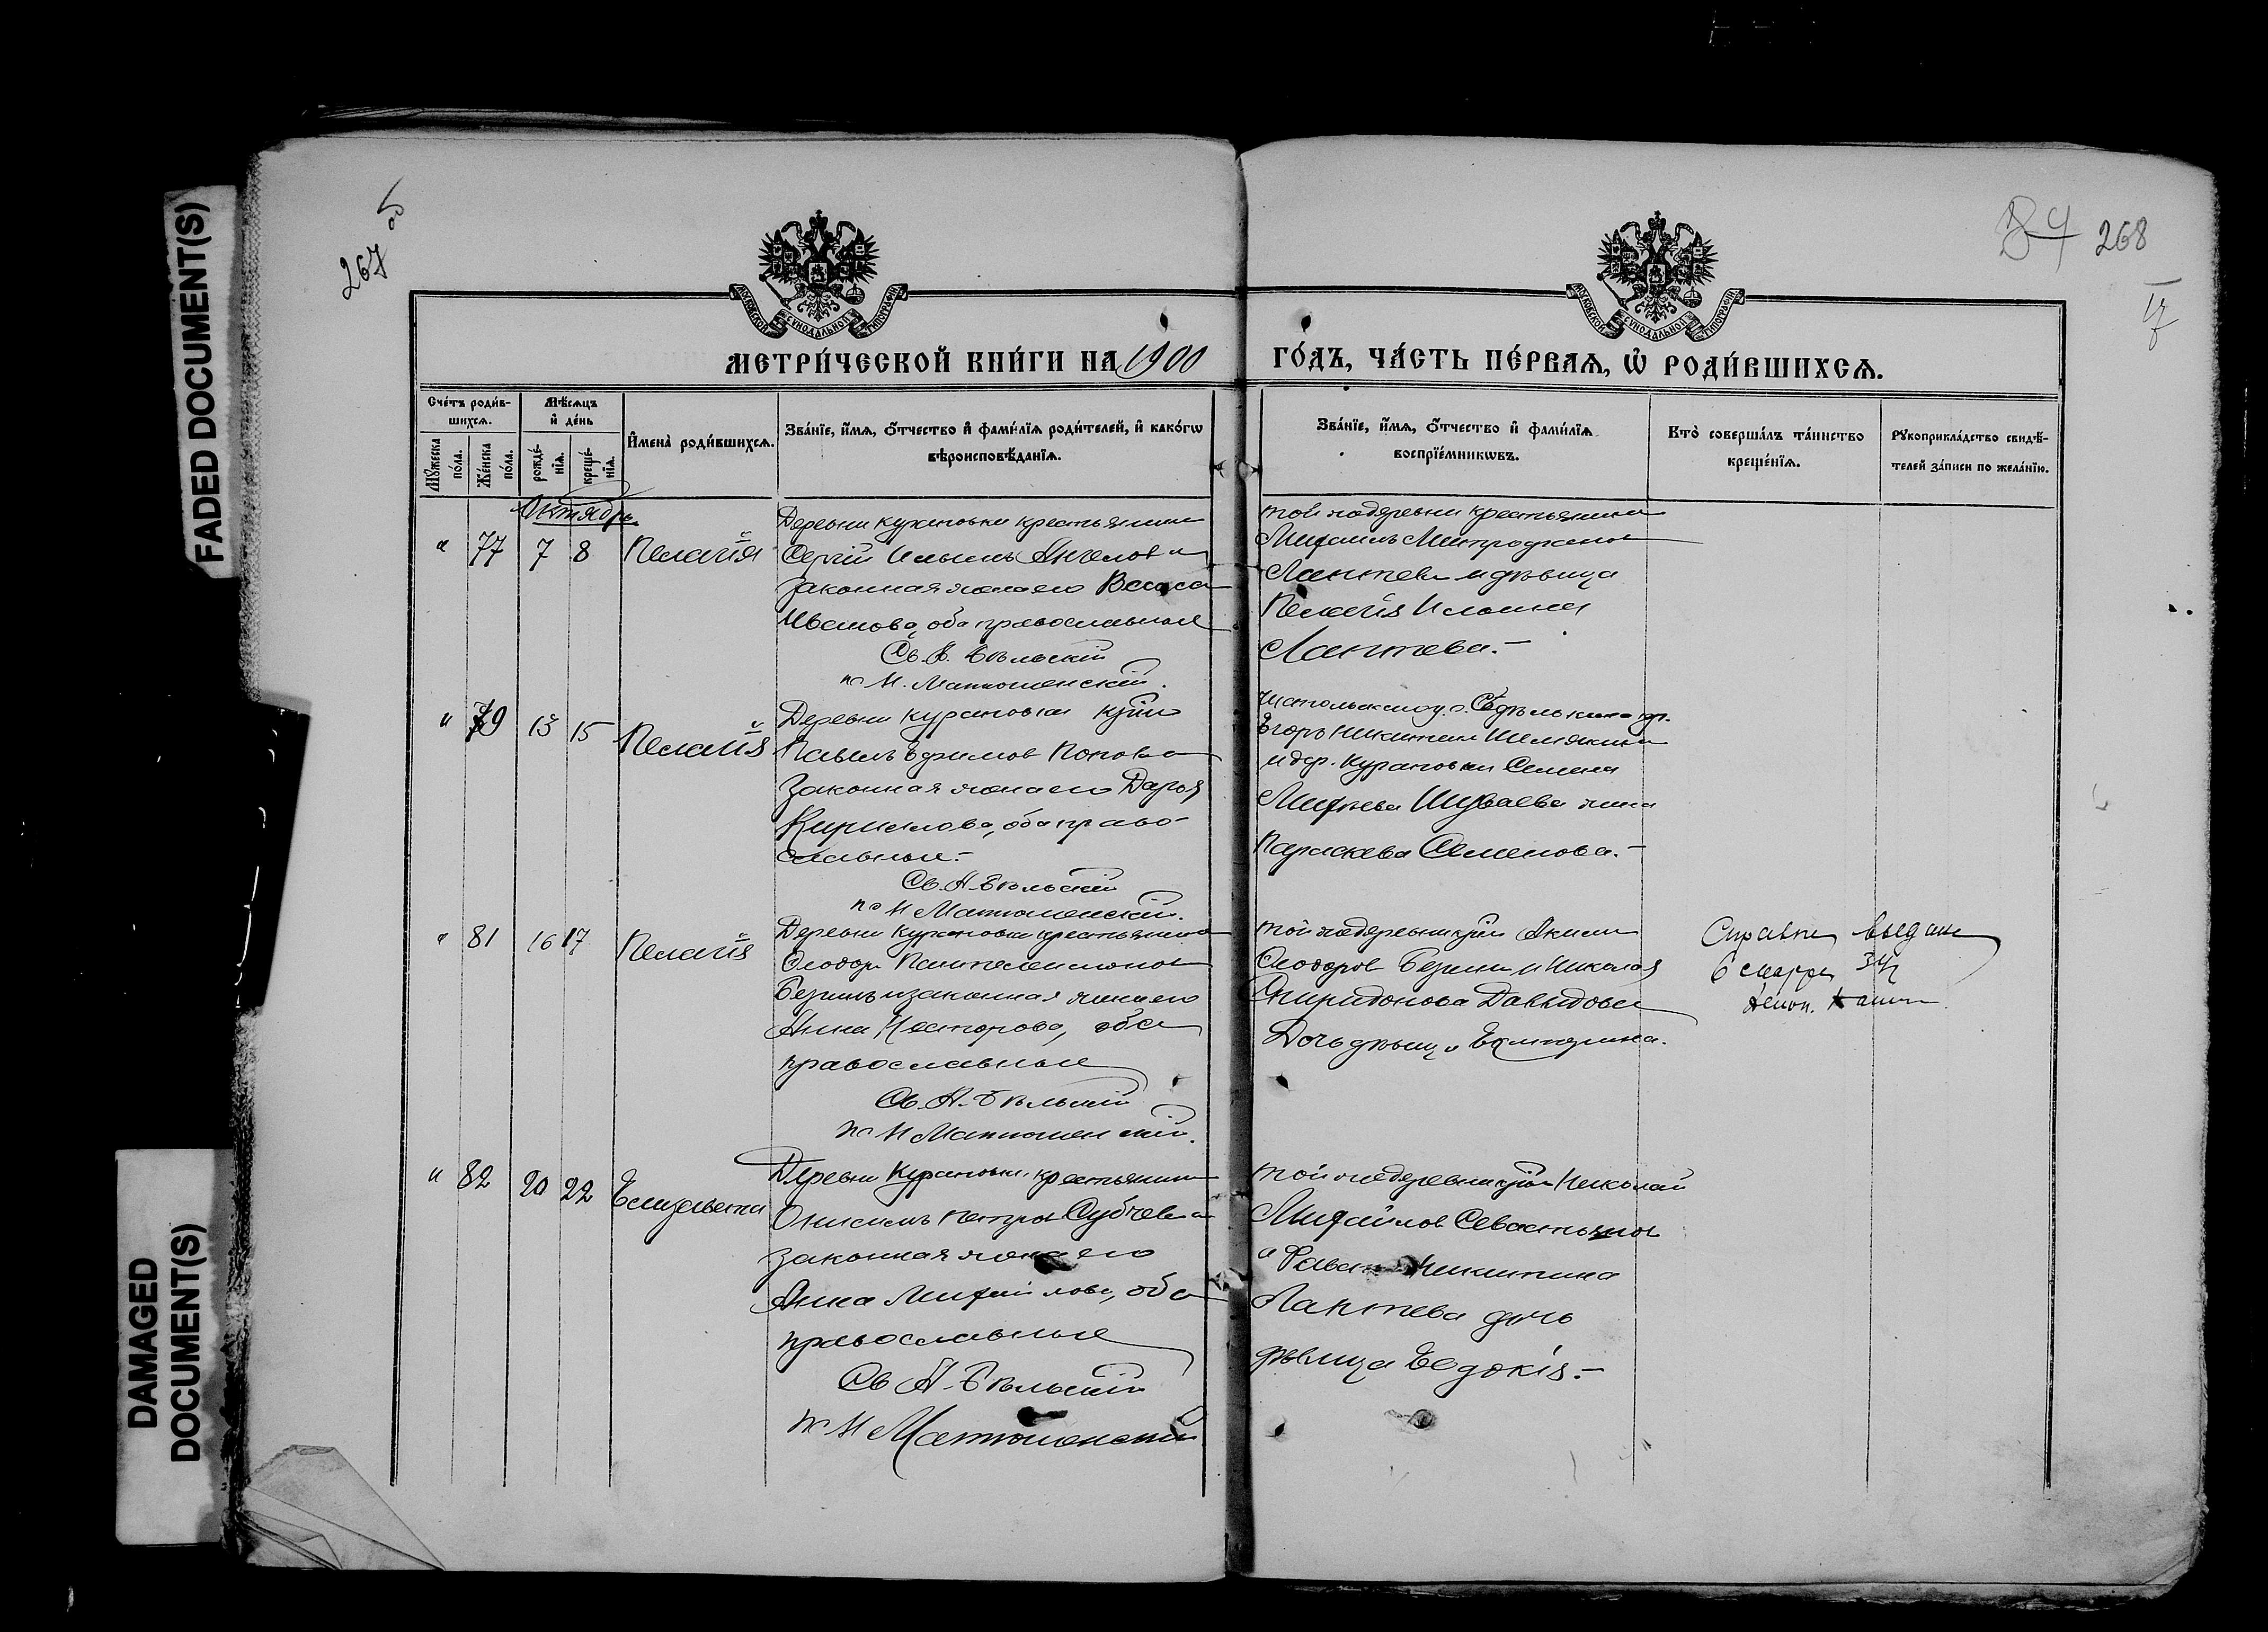 FADED DOCUMENT(S)
DAMAGED DOCUMENT(S)
267 об
268
17
МОСКОВСКОЙ СѴНОДАЛЬНОЙ ТИПОГРАФІИ
МОСКОВСКОЙ СѴНОДАЛЬНОЙ ТИПОГРАФІИ
МЕТРИ́ЧЕСКОЙ КНИ́ГИ НА 1900 ГО́ДЪ, ЧА́СТЬ ПЕ́РВАѦ, Ѡ҆ РОДИ́ВШИХСѦ.
Сче́тъ роди́в-
шихсѧ.
Мꙋ́жеска по́ла.
Же́нска по́ла.
Мѣ́сѧцъ
и҆ де́нь
рожде́-
нїѧ.
креще́-
нїѧ.
И҆мена̀ роди́вшихсѧ.
Зва́нїе, и҆́мѧ, ѻ҆́тчество и҆ фами́лїѧ роди́телей, и҆ како́гѡ
вѣроисповѣ́данїѧ.
Зва́нїе, и҆́мѧ, ѻ҆́тчество и҆ фами́лїѧ
воспрїе́мникѡвъ.
Кто̀ соверша́лъ та́инство
креще́нїѧ.
Рꙋкоприкла́дство свидѣ́-
телей за́писи по жела́нїю.
Октябрь
" 77 7 8 Пелагія
Деревни Курановки крестьянинъ
Сергій Ильинъ и
законная жена его
Иванова, оба православные
Св. А. Бѣльскій
пс И. Матюшенскій.
той же деревни крестьянинъ
Михаилъ Митрофановъ
Лаптевъ и дѣвица
Пелагія Ильина
Лаптева.-
" 79 13 15 Пелагія
Деревни Курановки кр-нъ
Павелъ Ефимовъ Поповъ и
законная жена его Дарья
Кириллова, оба право-
славные.-
Св. А. Бѣльскій
пс И Матюшенскій.
Егоръ Никитинъ Шемякинъ
и дер. Курановки Семена
Михѣева Шуваева жена
Параскева Семенова.-
" 81 16 17 Пелагія
Деревни Курановки крестьянинъ
Ѳеодоръ Пантелеимоновъ
законная жена его
Анна Несторова, оба
православные
Св. А. Бѣльскій
пс И Матюшенскій.
той же деревни кр-нъ Акимъ
Ѳеодоровъ и Николая
Спиридонова Давыдова
дочь дѣвица Екатерина.
Справка выдана
" 82 20 22 Елизавета
Деревни Курановки крестьянинъ
Онисимъ Петровъ и
законная жена его
Анна Михайлова, оба
православные
Св А. Бѣльскій
пс И Матюшенскій
той же деревни кр-нъ Николай
Михайловъ Севастьяновъ
и Никитина
Лаптева дочь
дѣвица Евдокія.-